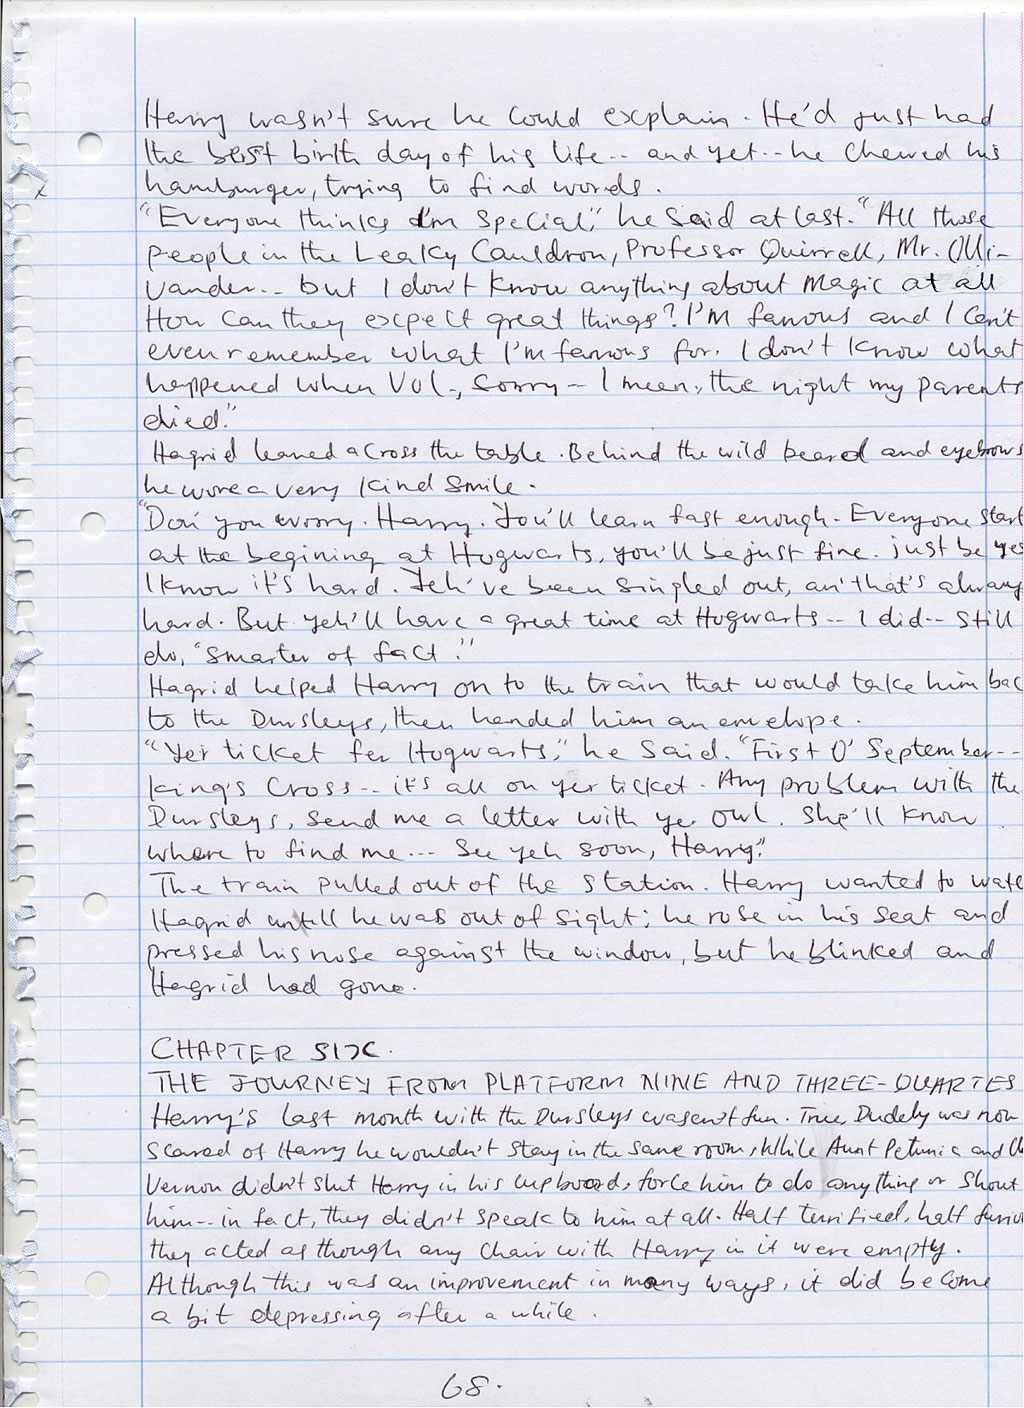 Harry wasn't sure he could explain. He'd just had
the best birth day of his life-- and yet-- he chewed his
hamburger, trying to find words.
"Everyone thinks I'm special," he said at last. "All those
people in the Leaky Cauldron, Professor Quirrell, Mr. Olli-
vander-- but I don't know anything about Magic at all
How can they expect great things? I'm famous and I can't
even remember what I'm famous for. I don't know what
happened when Vol-, sorry - I mean, the night my parents
died."
Hagrid leaned across the table. Behind the wild beard and eyebrows
he wore a very kind smile.
"Don' you worry. Harry. You'll learn fast enough. Everyone start
at the begining at Hogwarts, you'll be just fine. just be yes
I know it's hard. Yeh've been singled out, an' that's alway
hard. But yeh'll have a great time at Hogwarts-- I did-- still
do, 'smarter of fact."
Hagrid helped Harry on to the train that would take him bac
to the Dursleys, then handed him an envelope.
"Yer ticket fer Hogwarts," he said. "First O' September--
King's Cross-- it's all on yer ticket. Any problem with the
Dursleys, send me a letter with yer owl. She'll know
where to find me... See yeh soon, Harry."
The train pulled out of the station. Harry wanted to watc
Hagrid untill he was out of sight; he rose in his seat and
pressed his nose against the window, but he blinked and
Hagrid had gone.
CHAPTER SIX.
THE JOURNEY FROM PLATFORM NINE AND THREE-QUARTES
Harry's last month with the Dursleys wasen't fun. True, Dudely was now
scared of Harry he wouldn't stay in the same room, while Aunt Petunia and Un
Vernon didn't shut Harry in his cupboard, force him to do anything or shout
him-- in fact, they didn't speak to him at all. Half terrified, half furiou
they acted as though any chair with Harry in it were empty.
Although this was an improvement in many ways, it did become
a bit depressing after a while.
68.